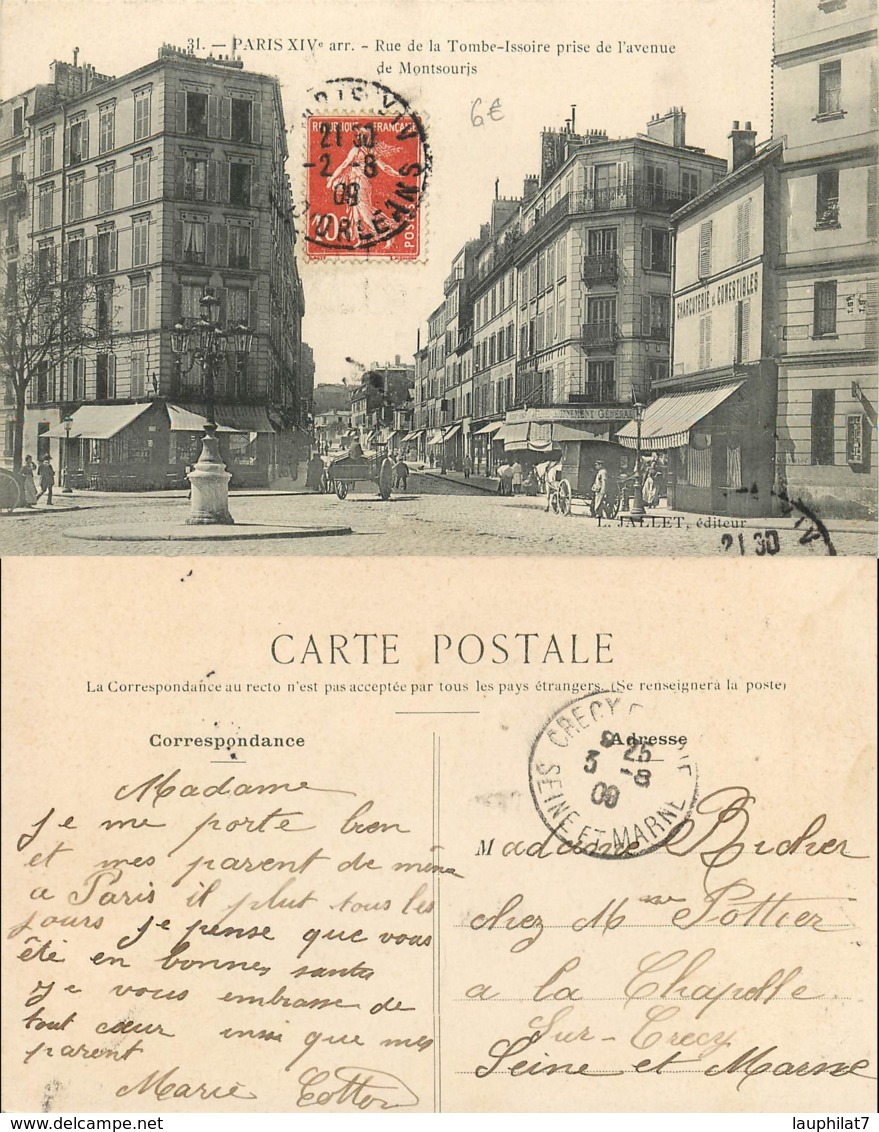 31. — PARIS XIVe arr. - Rue de la Tombe-Issoire prise de l'avenue
de Montsouris
6€
REPUBLIQUE FRANÇAISE
10c
POSTES
PARIS XIV
21 30
2 - 8
09
ORLEANS
CHARCUTERIE & COMESTIBLES
L. JALLET, éditeur
XIV
21 30
CARTE POSTALE
La Correspondance au recto n'est pas acceptée par tous les pays étrangers. (Se renseignera la poste)
Correspondance
Adresse
CRECY
9 25
3 - 8
09
SEINE ET MARNE
Madame
Je me porte bien
et mes parent de même
a Paris il plut tous les
jours je pense que vous
été en bonnes santé
Je vous embrasse de
tout cœur insi que mes
parent
Marie Cottor
Madame Richer
chez Mme Pottier
a la Chapelle
Sur-Crecy
Seine et Marne
lauphilat7